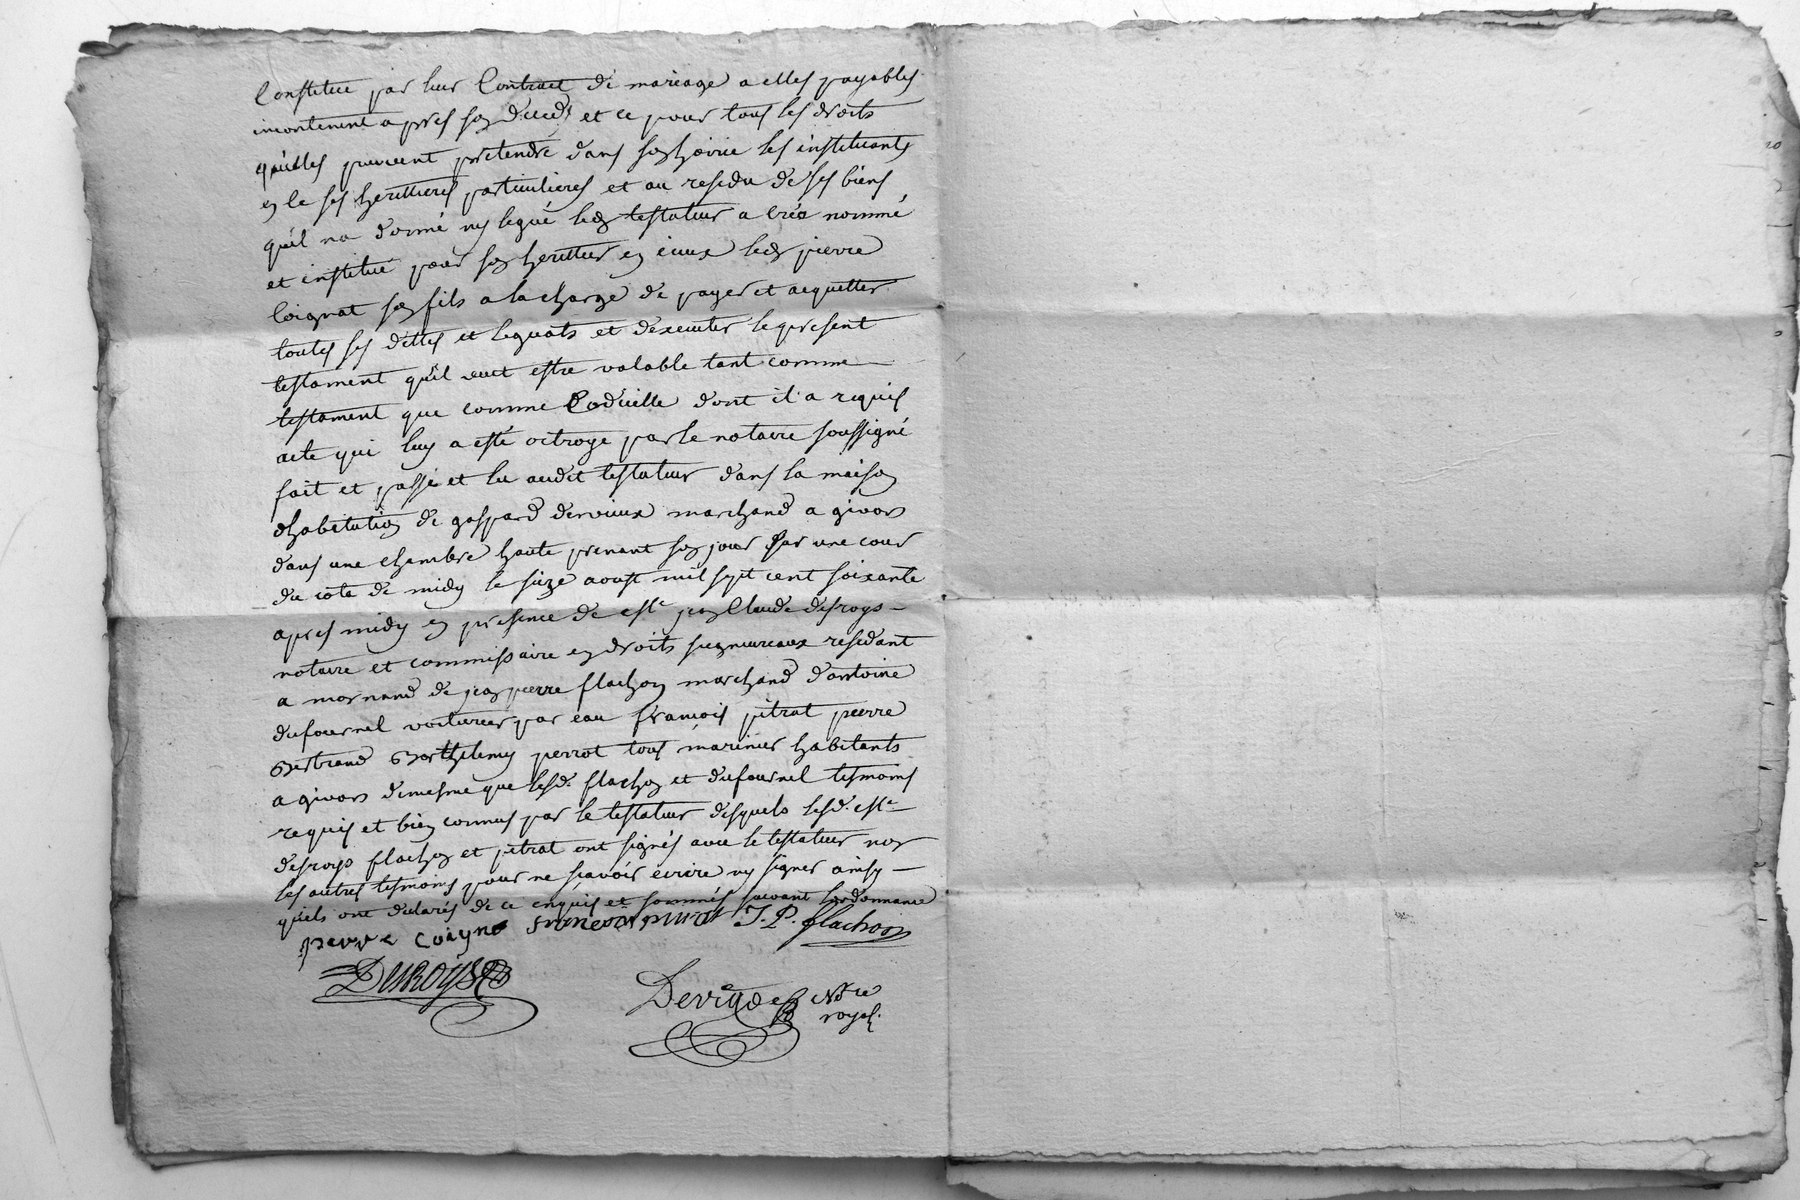 Constitué par leur Contract de mariage a elles payables
incontinent apres son deced et ce pour tous les droits
qu'elles peuvent pretendre dans son hoirie les instituants
en ce ses herittieres particulieres et au residu de ses biens
qu'il na donné ny legué led testateur a créé nommé
et institué pour son herittier en iceux led pierre
Coignat son fils a la charge de payer et acquitter
toutes ses dettes et leguats et dexecuter le present
testament quil veut estre valable tant comme
testament que comme Codicille dont il a requis
acte qui luy a esté octroye par le notaire soussigné
fait et passé et lu audit testateur dans la maison
dhabitation de gaspard dervieux marchand a givors
dans une chambre haute prenant son jour sur une cour
du coté de midy le seize aoust mil sept cent soixante
apres midy en presence de me jean Claude desroys
notaire et commissaire en droits seigneureaux residant
a mornand de jean pierre flachon marchand d'antoine
dufournel voiturier par eau françois pitrat pierre
Bertrand Barthelemy perrot tous mariniers habitants
a givors de mesme que lesd. flachon et dufournel tesmoins
requis et bien connus par le testateur desquels lesd. me
desroys flachon et pitrat ont signés avec le testateur non
les autres tesmoins pour ne sçavoir ecrire ny signer ainsy
quils ont declarés de ce enquis et sommés suivant lordonnance
pierre coigna francois pitrat J. P. flachon
DESROYS
Nore
royal.